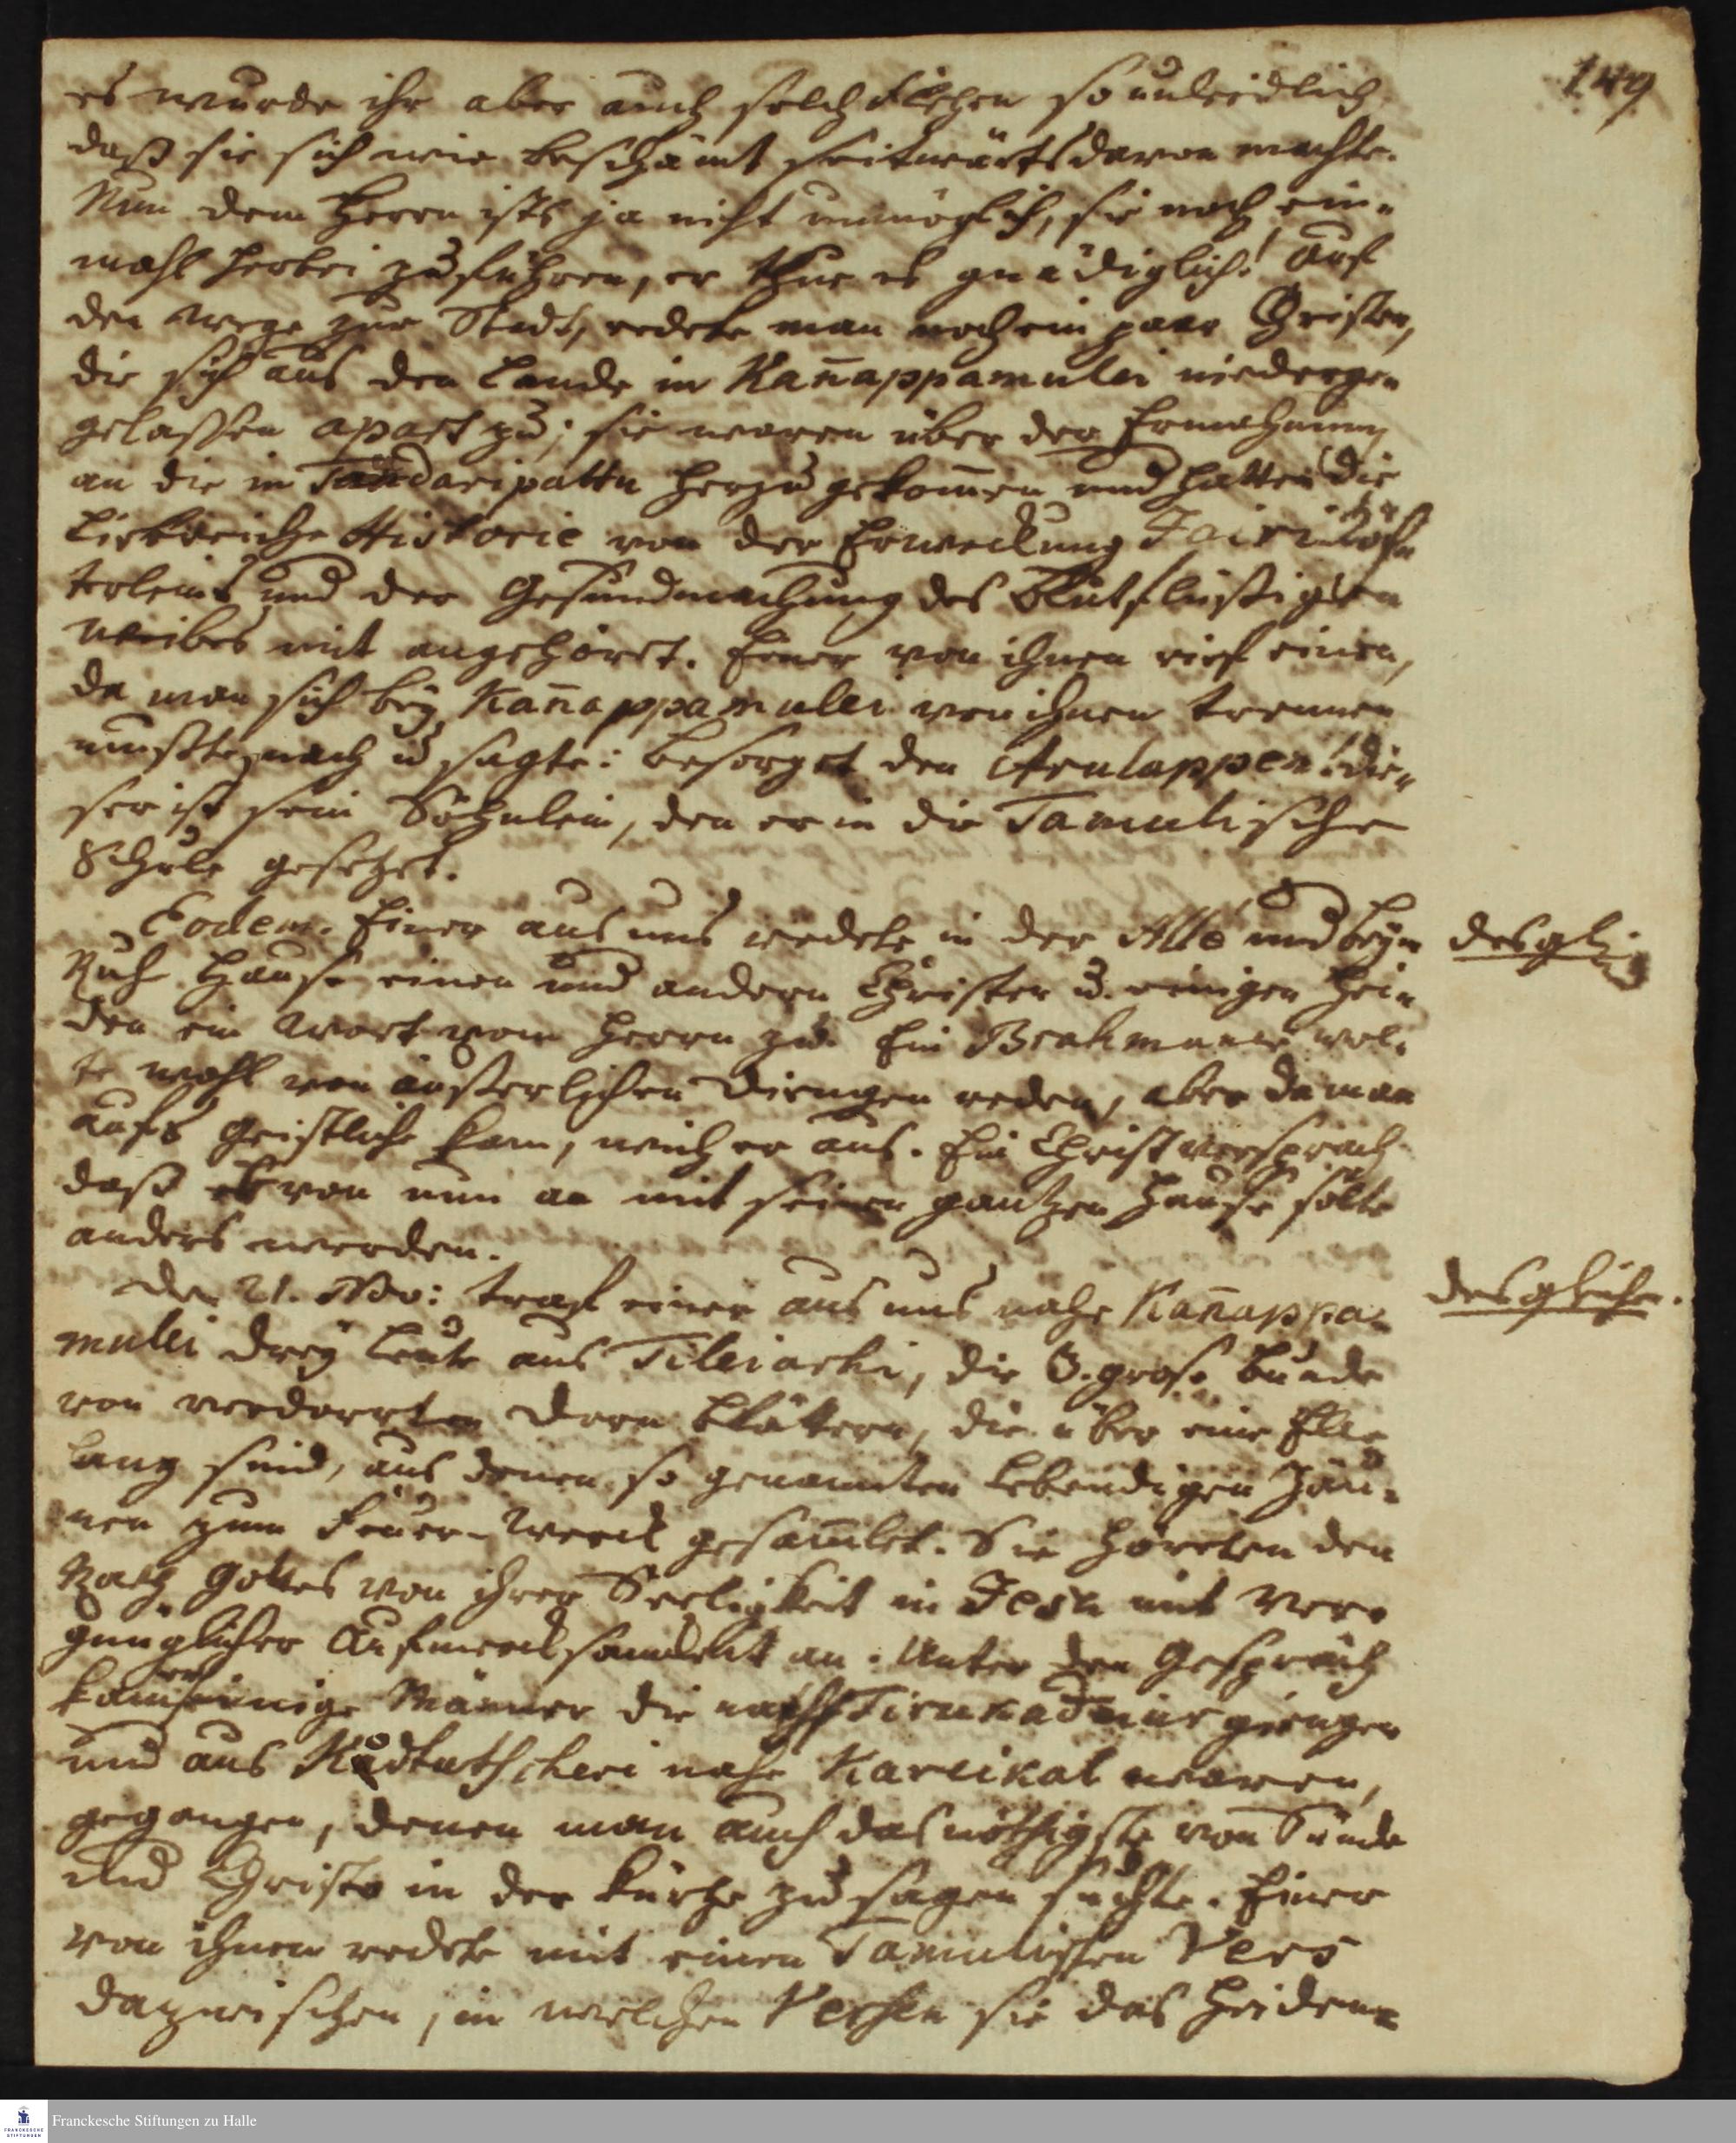 149
es wurde ihr aber auch solch Flehen so unleidlich
daß sie sich wie beschämt seitwärts davon machte.
Nun dem Herrn ists ja nicht unmöglich, sie noch ein-
mahl herbei zu führen, er thue es gnädiglich! Auf
den Wege zur Stadt, redete man noch ein paar Christen,
die sich aus den Lande in Kan̄appamulei niederge-
gelassen apart zu; sie waren über der Ermahnung
an die in Tandaripattu herzu gekom̄en und hatten die
liebreiche Historie von der Erweckung Jairi Töch-
terleins und der Gesundmachung des Blutflüßigen
Weibes mit angehöret. Einer von ihnen rief einen,
da man sich bey Kan̄appamulei von ihnen trennen
mußte, nach u sagte: besorget den Arulappen! die-
ser ist sein Söhnlein, den er in die Tamulische
Schule gesetzet.
Eodem. Einer aus uns redete in der Allé und beym
desgl:
Ruh Hause einen und andern Christen u. einigen Hei-
den ein Wort vom Herrn zu. Ein Brahmane wol-
te wohl von äußerlichen Dingen reden, aber da man
aufs Geistliche kam, wich er aus. Ein Christ versprach
daß es von nun an mit seinen gantzen Hause solte
anders werden.
Den 21. Nov: traf einer aus uns nahe Kan̄appa-
desgleiche.
mulei drey Leute aus Tileiarhi, die 3. große Bunde
von verdorrten Dorn Blättern, die über eine Elle
lang sind, aus denen so genannten lebendigen Zäu-
nen zum Feuer-Werck gesam̄let. Sie höreten den
Rath Gottes von ihrer Seeligkeit in Jesu mit ver-
gnüglicher Aufmercksamkeit an. Unter den Gespräch
kamen einige Männer die nach Tirukadeiur giengen
und aus Kodtutscheri nahe Kareikal waren,
gegangen, denen man auch das nöthigste von Sünde
und Christo in der Kürtze zu sagen suchte. Einer
von ihnen redete mit einen Tamulischen Vers
dazwischen, in welchen Versen sie das Heiden-
Franckesche Stiftungen zu Halle